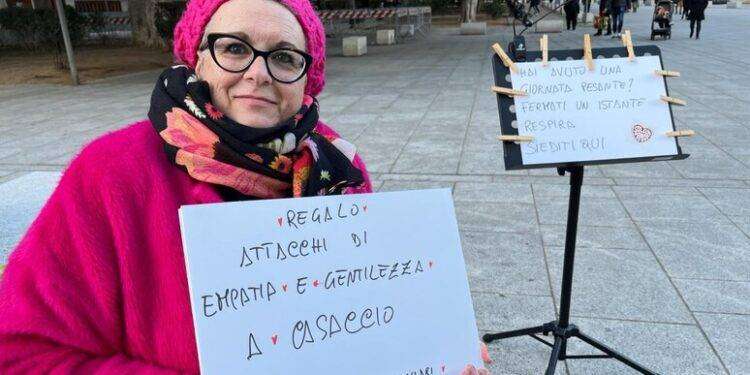 REGALO
ATTACCHI DI
EMPATIA E GENTILEZZA
A CASACCIO
HAI AVUTO UNA
GIORNATA PESANTE?
FERMATI UN ISTANTE
RESPIRA
SIEDITI QUI